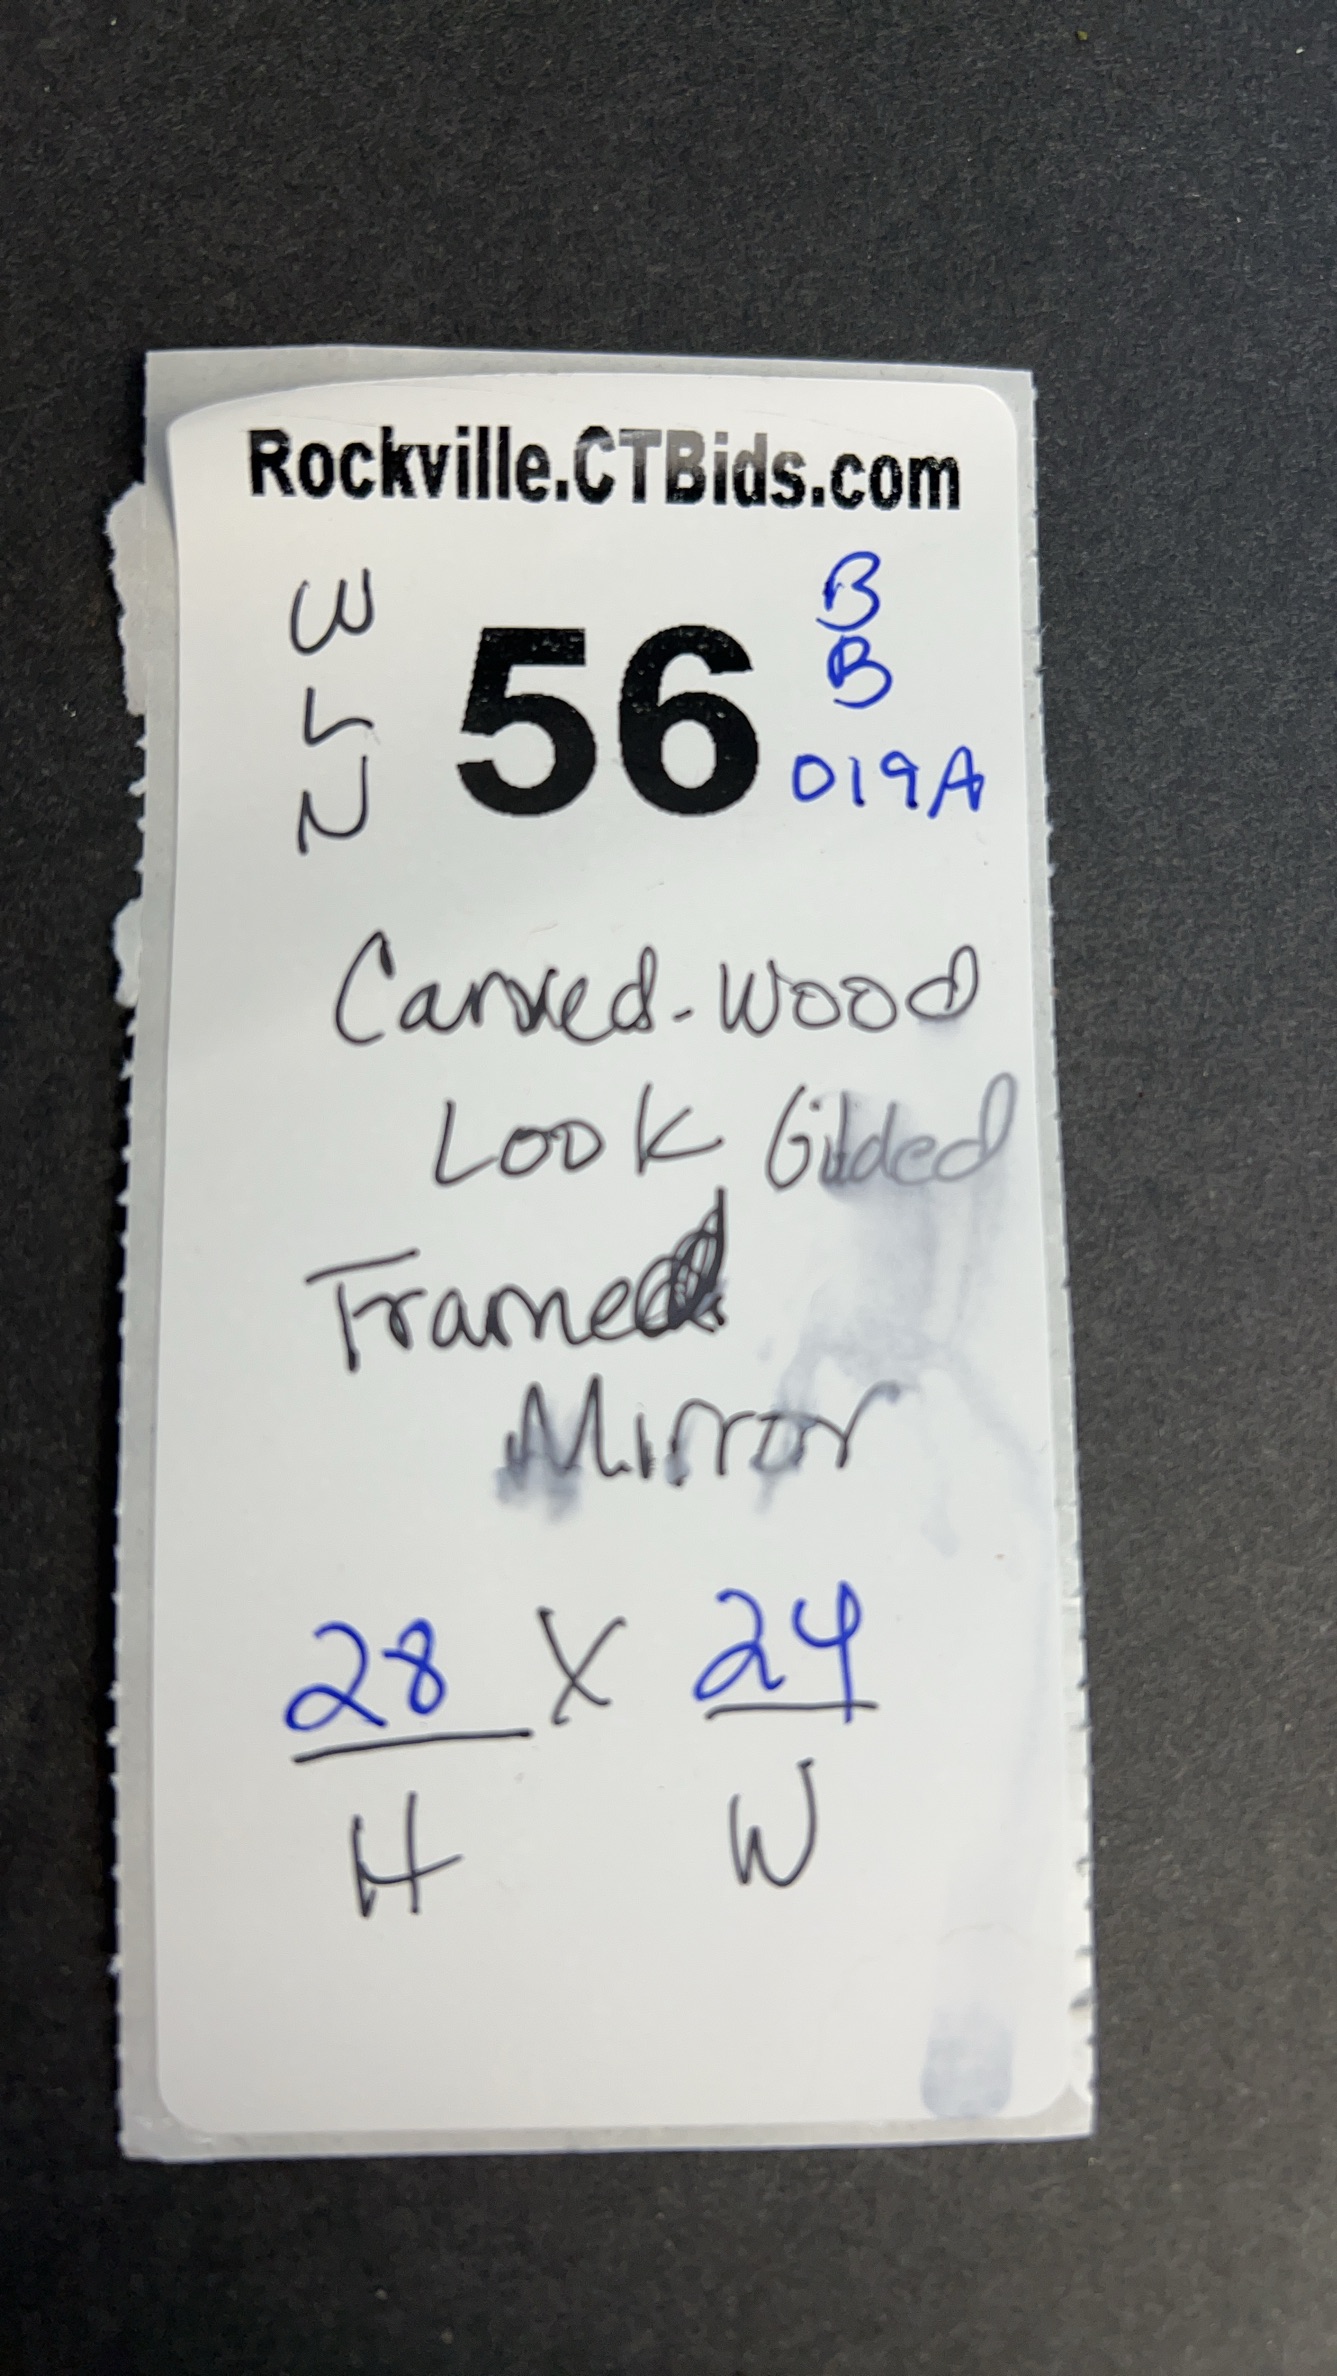 Rockville.CTBids.com
W
L
N
56
B
B
019A
Carved-Wood
Look Gilded
Frame
Mirror
28 X 24
H W